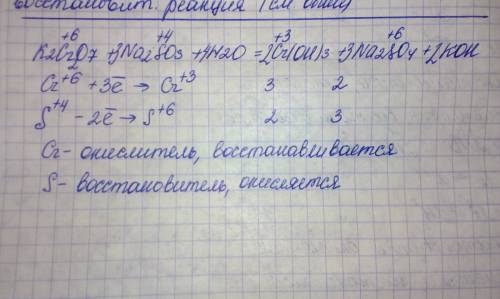 восстановит. реакция (см
+6 +4 +3 +6
K2Cr2O7 + 3Na2SO3 + 4H2O = 2Cr(OH)3 + 3Na2SO4 + 2KOH
Cr+6 + 3ē → Cr+3 3 2
S+4 - 2ē → S+6 2 3
Cr - окислитель, восстанавливается
S - восстановитель, окисляется